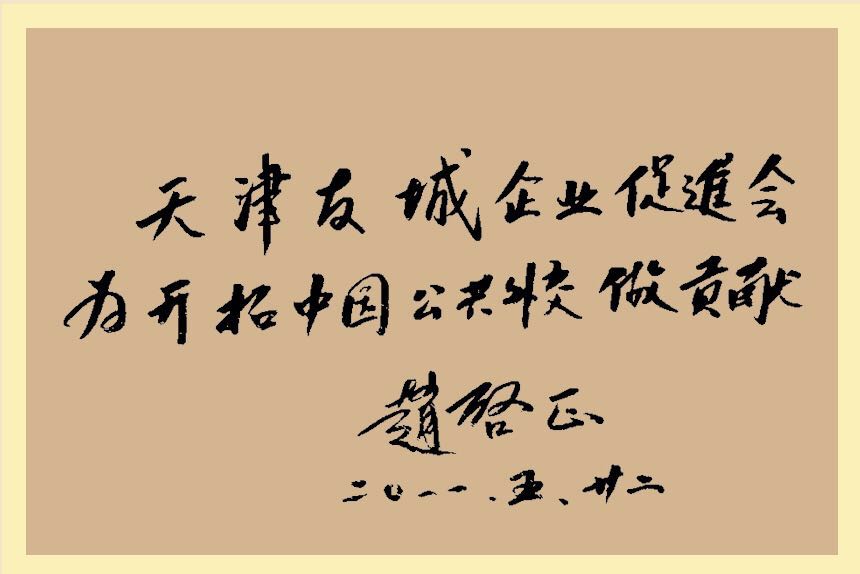 天津友城企业促進会
为开拓中国公共外交做贡献
趙啓正
二〇一一.五.廿二